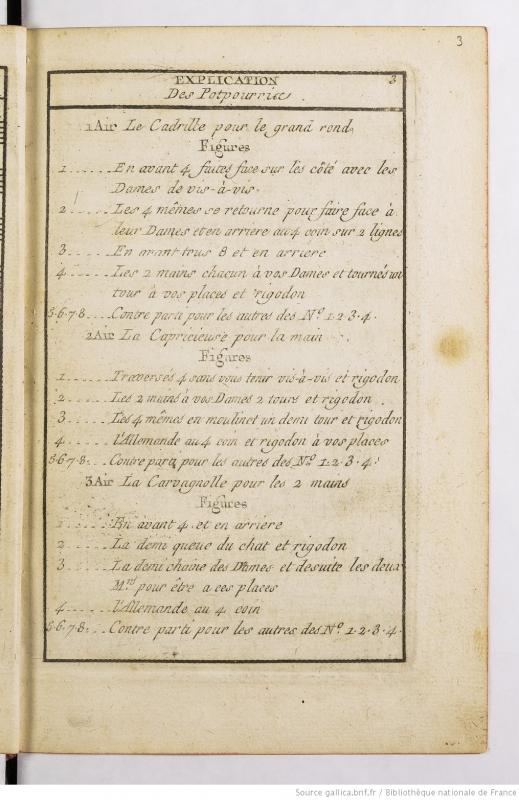 3
EXPLICATION 3
Des Potpourries.
1 Air Le Cadrille pour le grand rond
Figures
1...... En avant 4 faites face sur les côté avec les
Dames de vis-à-vis.
2...... Les 4 mêmes se retourne pour faire face à
leur Dames et en arriere au 4 coin sur 2 lignes
3...... En avant tous 8 et en arriere
4...... Les 2 mains chacun à vos Dames et tournés un
tour à vos places et rigodon
5.6.7.8... Contre parti pour les autres des Nº. 1.2.3.4.
2 Air La Capricieuse pour la main
Figures
1...... Traversés 4 sans vous tenir vis-à-vis et rigodon
2...... Les 2 mains à vos Dames 2 tours et rigodon.
3...... Les 4 mêmes en moulinet un demi tour et rigodon
4...... l'Allemande au 4 coin et rigodon à vos places
5.6.7.8... Contre parti pour les autres des Nº. 1.2.3.4.
3 Air La Carvagnolle pour les 2 mains
Figures
1...... En avant 4 et en arriere
2...... La demi queue du chat et rigodon
3...... La demi chaine des Dames et desuite les deux
Mrs pour être a ces places
4...... l'Allemande au 4 coin
5.6.7.8... Contre parti pour les autres des Nº. 1.2.3.4.
Source gallica.bnf.fr / Bibliothèque nationale de France